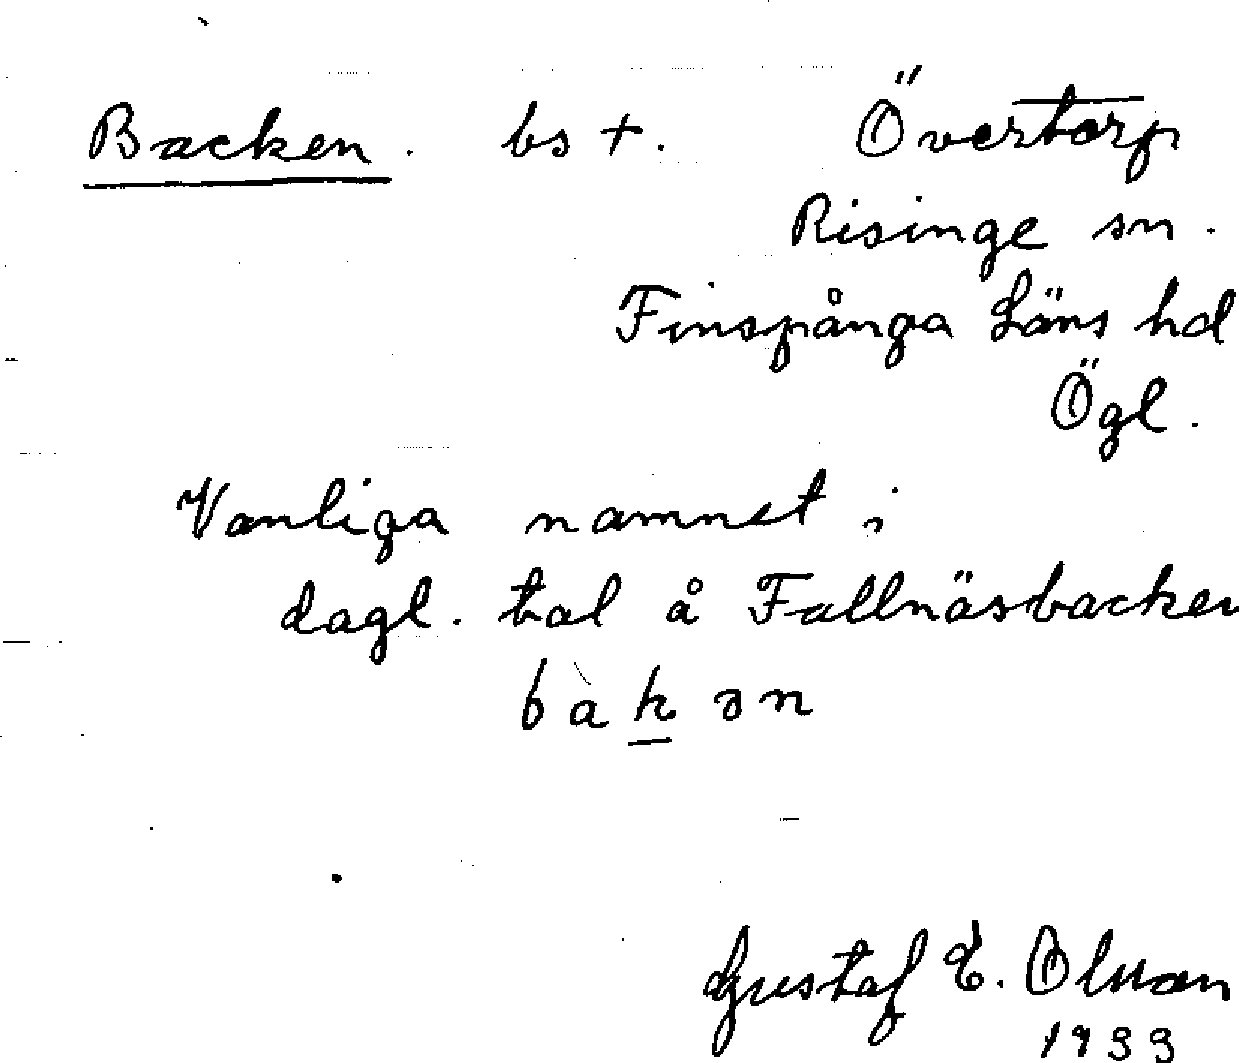 Backen. bs +. Övertorp
Risinge sn.
Finspånga Läns hd
Ögl.
Vanliga namnet i
dagl. tal å Fallnäsbacken
bàkən
Gustaf E. Olman
1933